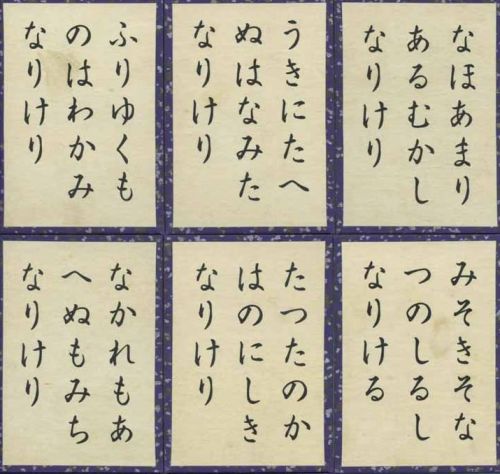 なほあまり
あるむかし
なりけり
うきにたへ
ぬはなみた
なりけり
ふりゆくも
のはわかみ
なりけり
みそきそな
つのしるし
なりける
たつたのか
はのにしき
なりけり
なかれもあ
へぬもみち
なりけり